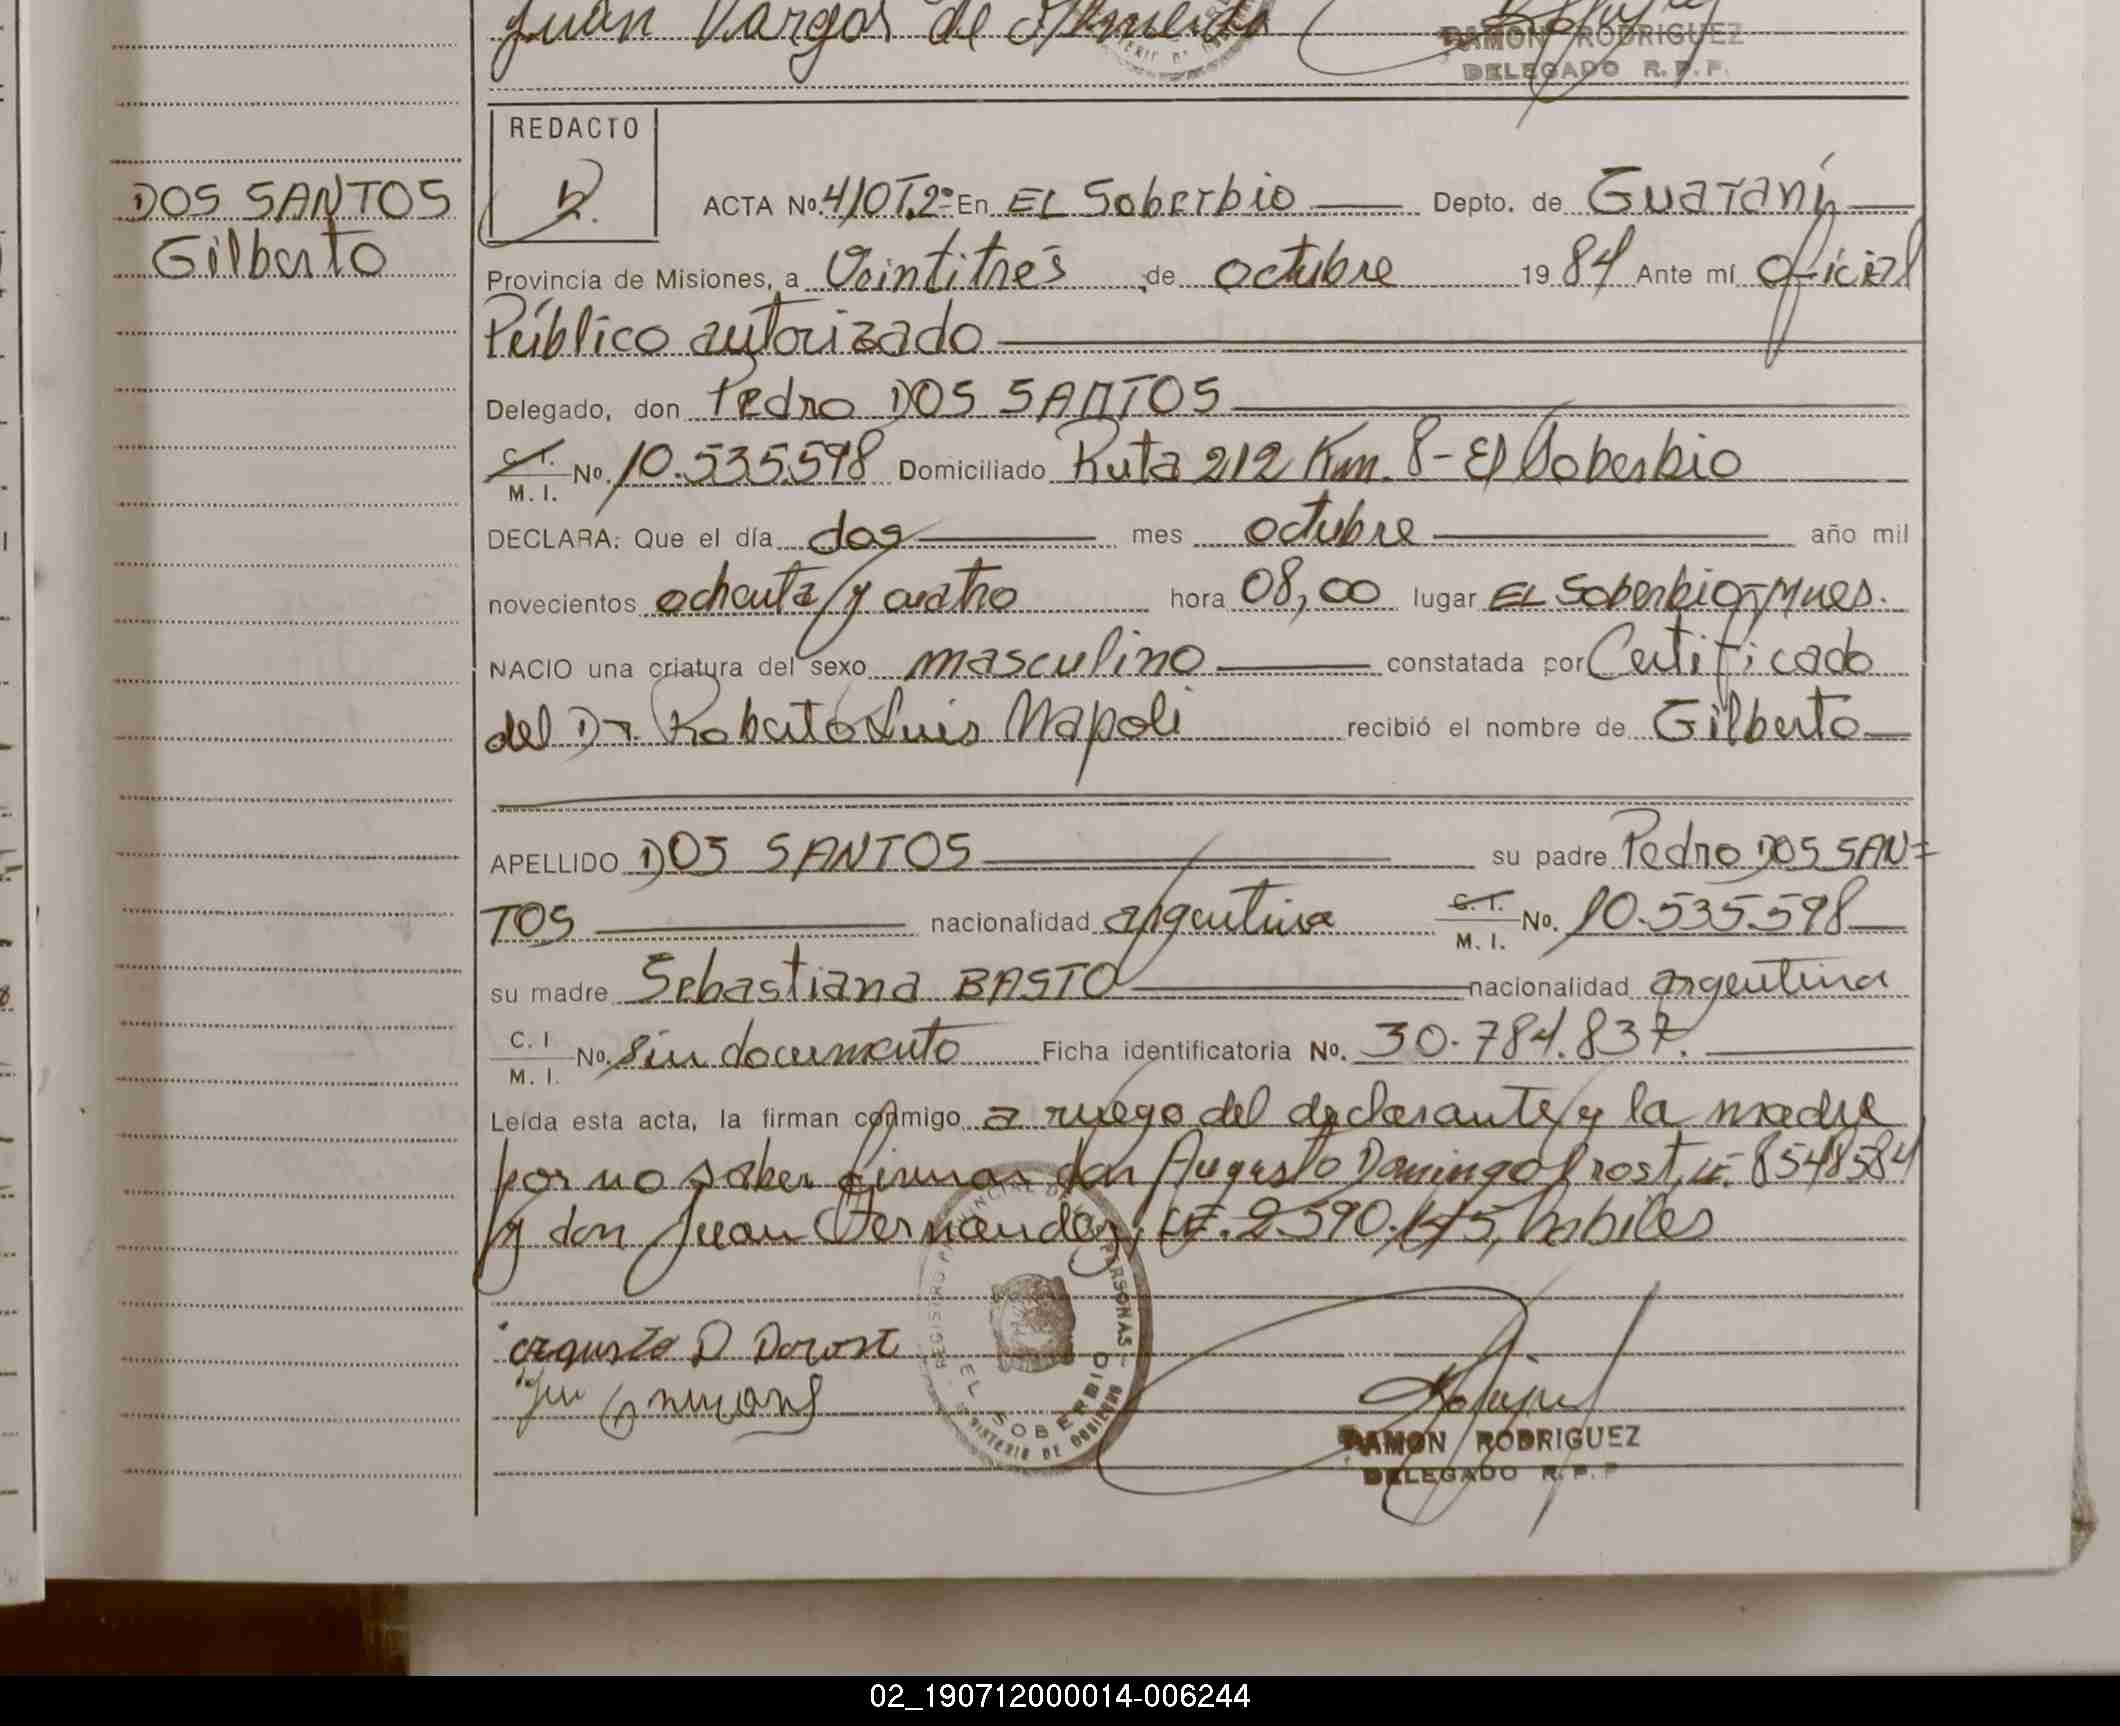 Juan Vargas de Almeida
RAMON RODRIGUEZ
DELEGADO R. P. P.
DOS SANTOS
Gilberto
REDACTO
ACTA No. 410T.2º En EL Soberbio Depto. de Guaraní
Provincia de Misiones, a Veintitrés de octubre 1984 Ante mí oficial
Público autorizado
Delegado, don Pedro DOS SANTOS
C. I.
M. I. No. 10.535.598 Domiciliado Ruta 212 Km. 8 - El Soberbio
DECLARA: Que el día dos mes octubre año mil
novecientos ochenta y cuatro hora 08,00 lugar EL Soberbio-Mnes.
NACIO una criatura del sexo masculino constatada por Certificado
del Dr. Roberto Luis Napoli recibió el nombre de Gilberto
APELLIDO DOS SANTOS su padre Pedro DOS SAN=
TOS nacionalidad argentina C. I.
M. I. No. 10.535.598
su madre Sebastiana BASTO nacionalidad argentina
C. I
M. I. No. sin documento Ficha identificatoria No. 30.784.837.
Leída esta acta, la firman conmigo a ruego del declarante y la madre
por no saber firmar don Augusto Domingo Prost, LE. 8548584
y don Juan Fernandez, LE. 2.590. habiles
REGISTRO PROVINCIAL DE PERSONAS
EL SOBERBIO
MINISTERIO DE GOBIERNO
RAMON RODRIGUEZ
DELEGADO R. P. P
02_190712000014-006244